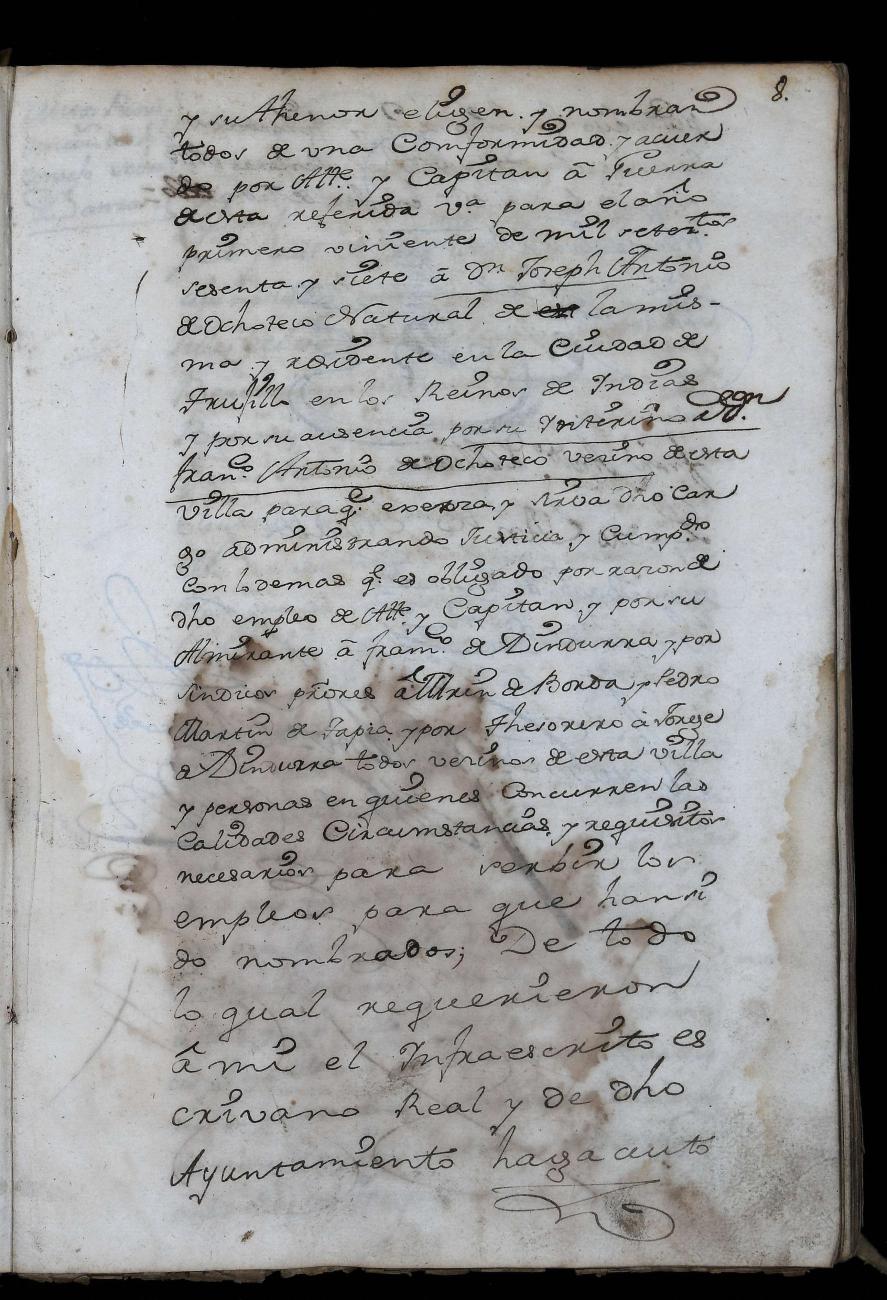 8.
y su thenor elixen y nombran
todos de vna Comformidad y acuer
do por Alle. y Capitan â Guerra
de esta referida va para el año
primero viniente de mil setectos
sesenta y siete â Dn Joseph Antonio
de Ochoteco Natural de la mis-
ma y residente en la Ciudad de
Trujillo en los Reinos de Indias
y por su ausencia por su Interino a Dn.
franco. Antonio de Ochoteco vecino de esta
villa para qe. exerza y sirva dho Car
go administrando Justicia y Cumpdo
con lo demas qe. es obligado por razon de
dho empleo de Alle. y Capitan y por su
Almirante â franco. de Dindurra y por
sindicos prôres â Mrin de Borda y Pedro
Martin de Tapia y por Thesorero â Jorge
de Dindurra todos vecinos de esta villa
y personas en quienes Concurren las
Calidades Circumstancias y requisitos
necesarios para serbir los
empleos para que han si
do nombrados; De todo
lo qual requerieron
â mi el Infraescrito es
crivano Real y de dho
Ayuntamiento haga auto